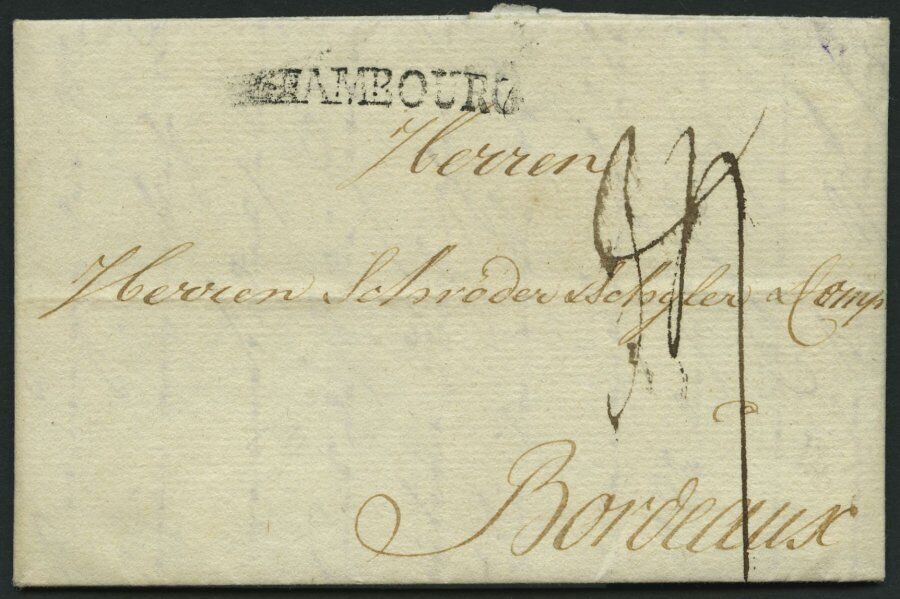 HAMBOURG
Herren
Herren Schröder Schyler & Comp
Bordeaux